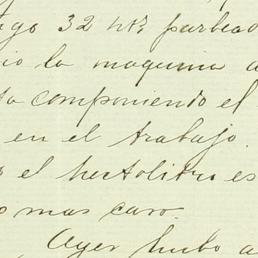 32 hts
la maquina a
componiendo el
en el trabajo.
el hectolitro es
mas caro.
Ayer hubo a